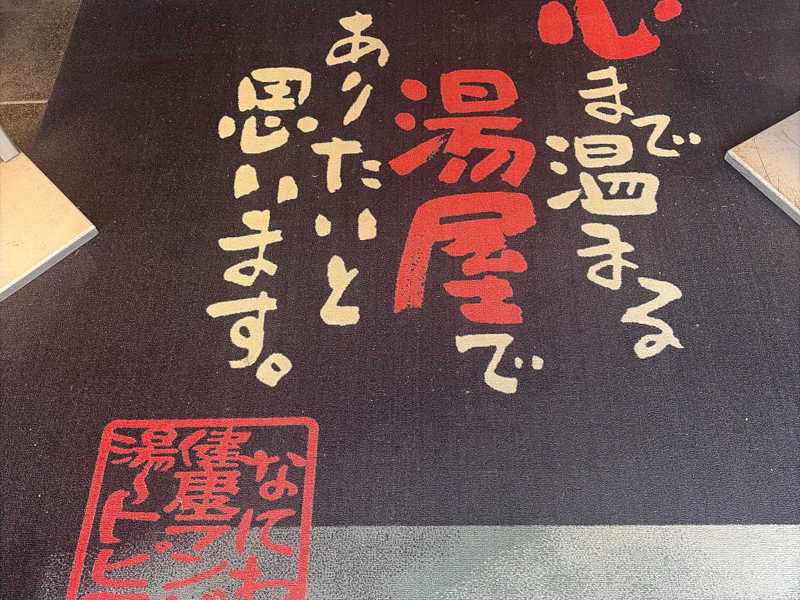 心まで温まる
湯屋で
ありたいと
思います。
なにわ
健康ラン
湯〜トピ